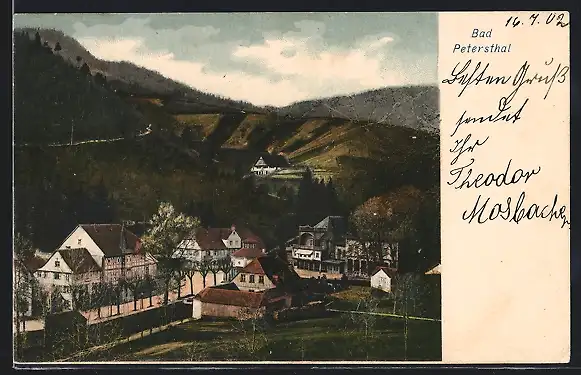 16. 7. 02
Bad
Petersthal
Besten Gruß
sendet
Ihr
Theodor
Mosbacher